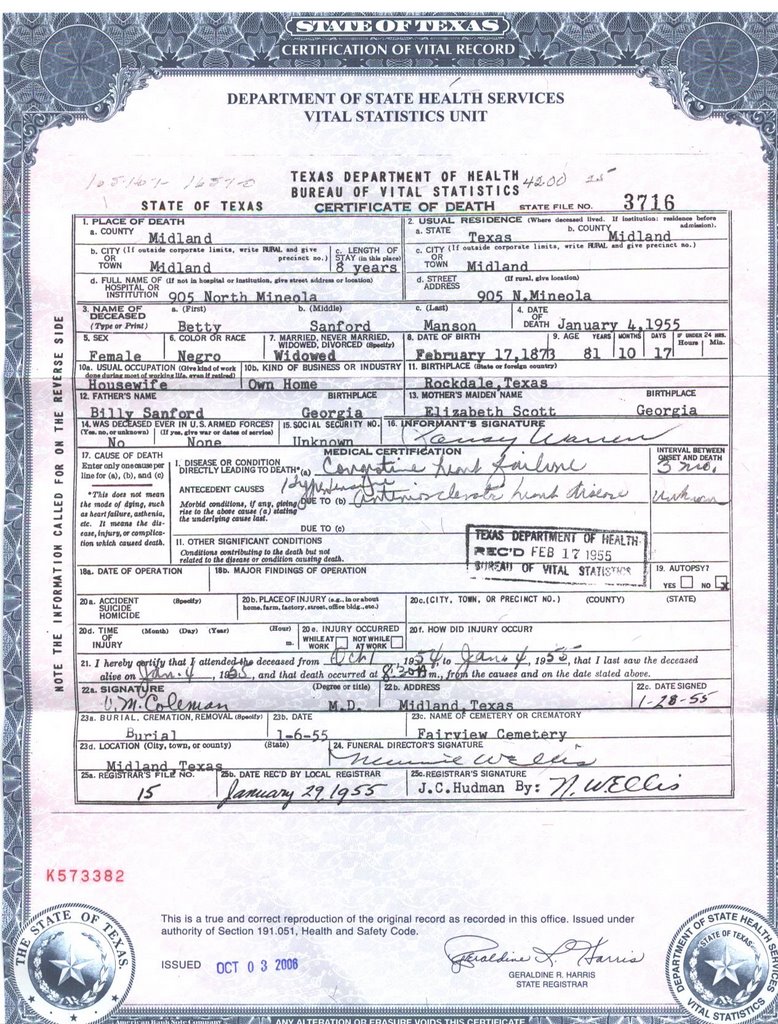 STATE OF TEXAS
CERTIFICATION OF VITAL RECORD
DEPARTMENT OF STATE HEALTH SERVICES
VITAL STATISTICS UNIT
TEXAS DEPARTMENT OF HEALTH
BUREAU OF VITAL STATISTICS 4200
STATE OF TEXAS CERTIFICATE OF DEATH STATE FILE NO. 3716
NOTE THE INFORMATION CALLED FOR ON THE REVERSE SIDE
1. PLACE OF DEATH 2. USUAL RESIDENCE (Where deceased lived. If institution: residence before admission).
a. COUNTY Midland a. STATE Texas b. COUNTY Midland
b. CITY (If outside corporate limits, write RURAL and give precinct no.) OR TOWN Midland c. LENGTH OF STAY (in this place) 8 years c. CITY (If outside corporate limits, write RURAL and give precinct no.) OR TOWN Midland
d. FULL NAME OF (If not in hospital or institution, give street address or location) HOSPITAL OR INSTITUTION 905 North Mineola d. STREET ADDRESS (If rural, give location) 905 N.Mineola
3. NAME OF DECEASED (Type or Print) a. (First) Betty b. (Middle) Sanford c. (Last) Manson 4. DATE OF DEATH January 4,1955
5. SEX Female 6. COLOR OR RACE Negro 7. MARRIED, NEVER MARRIED, WIDOWED, DIVORCED (Specify) Widowed 8. DATE OF BIRTH February 17,1873 9. AGE YEARS 81 MONTHS 10 DAYS 17 IF UNDER 24 HRS. Hours Min.
10a. USUAL OCCUPATION (Give kind of work done during most of working life, even if retired) Housewife 10b. KIND OF BUSINESS OR INDUSTRY Own Home 11. BIRTHPLACE (State or foreign country) Rockdale,Texas
12. FATHER'S NAME Billy Sanford BIRTHPLACE Georgia 13. MOTHER'S MAIDEN NAME Elizabeth Scott BIRTHPLACE Georgia
14. WAS DECEASED EVER IN U.S. ARMED FORCES? (Yes, no, or unknown) No (If yes, give war or dates of service) None 15. SOCIAL SECURITY NO. Unknown 16. INFORMANT'S SIGNATURE Pansy Warren
17. CAUSE OF DEATH
Enter only one cause per line for (a), (b), and (c)
*This does not mean the mode of dying, such as heart failure, asthenia, etc. It means the disease, injury, or complication which caused death.
MEDICAL CERTIFICATION INTERVAL BETWEEN ONSET AND DEATH
I. DISEASE OR CONDITION DIRECTLY LEADING TO DEATH* (a) Congestive heart failure 3 mo.
ANTECEDENT CAUSES Hypertensive
Morbid conditions, if any, giving rise to the above cause (a) stating the underlying cause last. DUE TO (b) Arteriosclerotic heart disease unknown
DUE TO (c)
II. OTHER SIGNIFICANT CONDITIONS
Conditions contributing to the death but not related to the disease or condition causing death.
TEXAS DEPARTMENT OF HEALTH
REC'D FEB 17 1955
BUREAU OF VITAL STATISTICS
18a. DATE OF OPERATION 18b. MAJOR FINDINGS OF OPERATION 19. AUTOPSY? YES NO X
20a. ACCIDENT SUICIDE HOMICIDE (Specify) 20b. PLACE OF INJURY (e.g., in or about home, farm, factory, street, office bldg., etc.) 20c. (CITY, TOWN, OR PRECINCT NO.) (COUNTY) (STATE)
20d. TIME OF INJURY (Month) (Day) (Year) (Hour) m. 20e. INJURY OCCURRED WHILE AT WORK NOT WHILE AT WORK 20f. HOW DID INJURY OCCUR?
21. I hereby certify that I attended the deceased from Oct 1 1954, to Jan 4, 1955, that I last saw the deceased
alive on Jan. 4, 1955, and that death occurred at 8:30A m., from the causes and on the date stated above.
22a. SIGNATURE V.M. Coleman (Degree or title) M.D. 22b. ADDRESS Midland,Texas 22c. DATE SIGNED 1-28-55
23a. BURIAL, CREMATION, REMOVAL (Specify) Burial 23b. DATE 1-6-55 23c. NAME OF CEMETERY OR CREMATORY Fairview Cemetery
23d. LOCATION (City, town, or county) (State) Midland,Texas 24. FUNERAL DIRECTOR'S SIGNATURE
25a. REGISTRAR'S FILE NO. 15 25b. DATE REC'D BY LOCAL REGISTRAR January 29,1955 25c. REGISTRAR'S SIGNATURE J.C.Hudman By: N. W. Ellis
K573382
This is a true and correct reproduction of the original record as recorded in this office. Issued under
authority of Section 191.051, Health and Safety Code.
ISSUED OCT 03 2006
Geraldine R. Harris
GERALDINE R. HARRIS
STATE REGISTRAR
THE STATE OF TEXAS
DEPARTMENT OF STATE HEALTH SERVICES
STATE OF TEXAS
VITAL STATISTICS
American Bank Note Company
ANY ALTERATION OR ERASURE VOIDS THIS CERTIFICATE